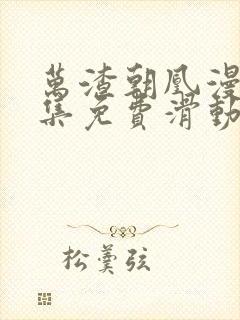 萬渣朝凰漫
集免費滑動
松羹弦